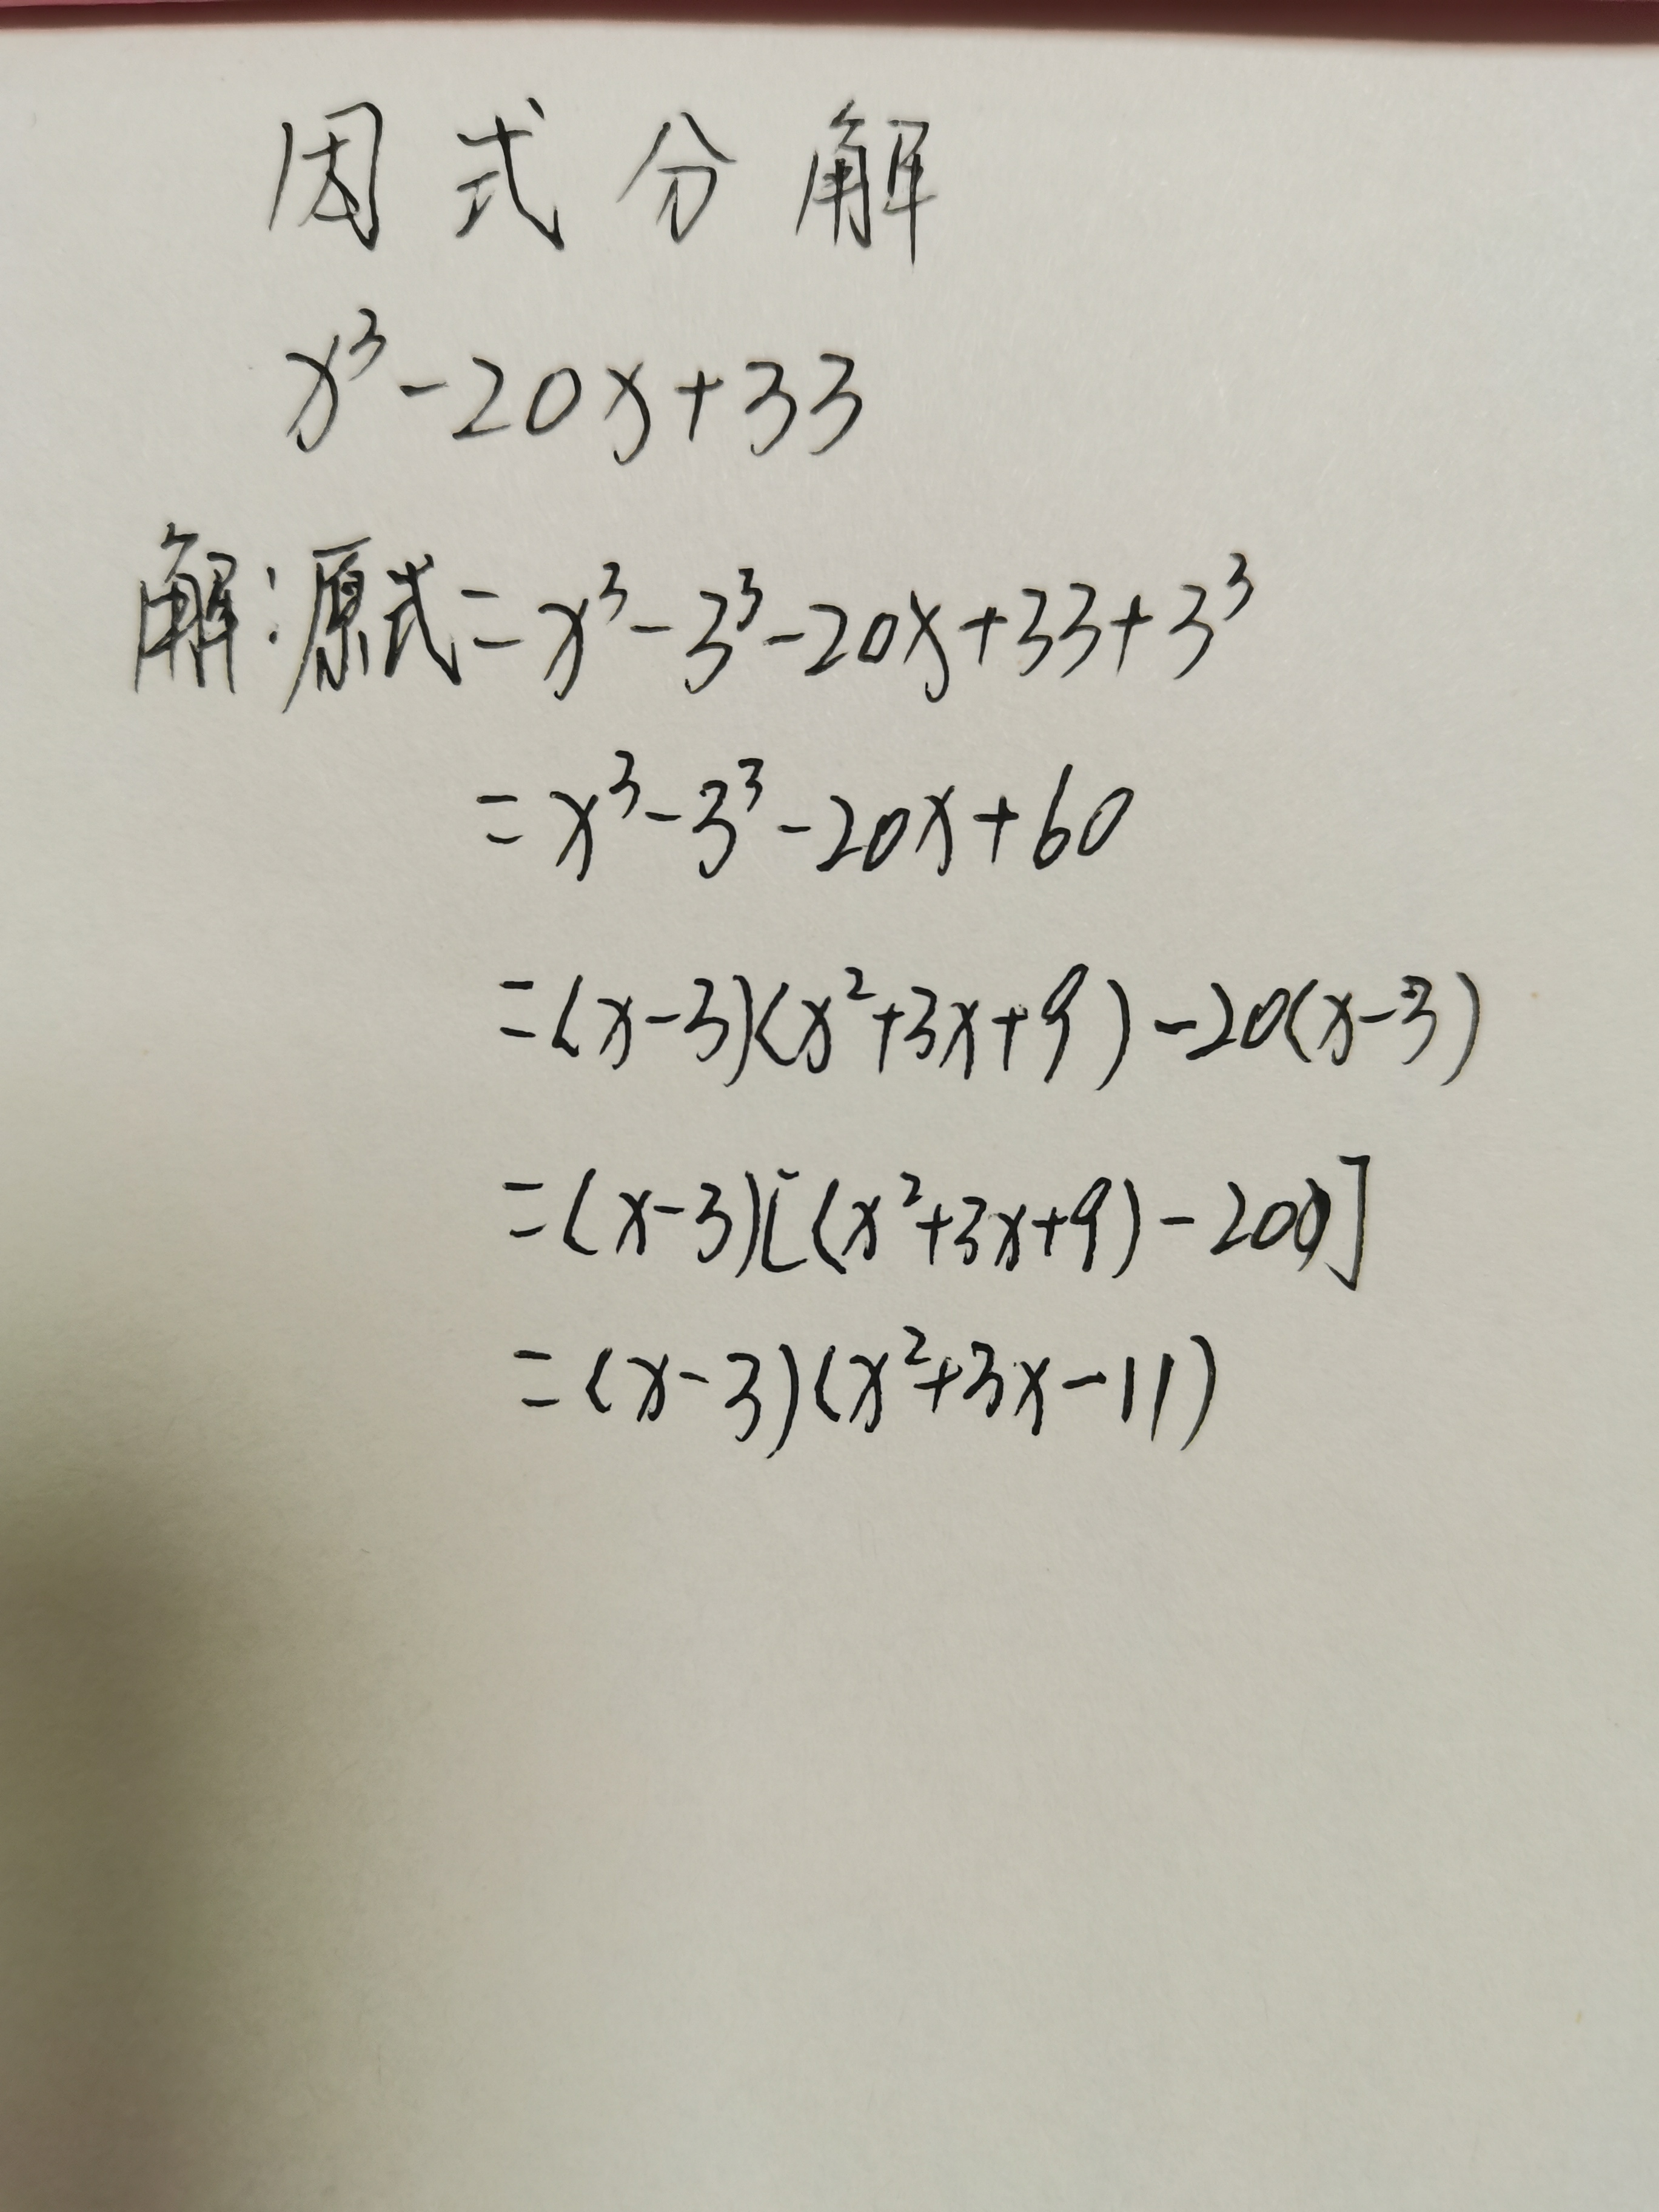 因式分解
x³-20x+33
解:原式=x³-3³-20x+33+3³
=x³-3³-20x+60
=(x-3)(x²+3x+9)-20(x-3)
=(x-3)[(x²+3x+9)-20]
=(x-3)(x²+3x-11)